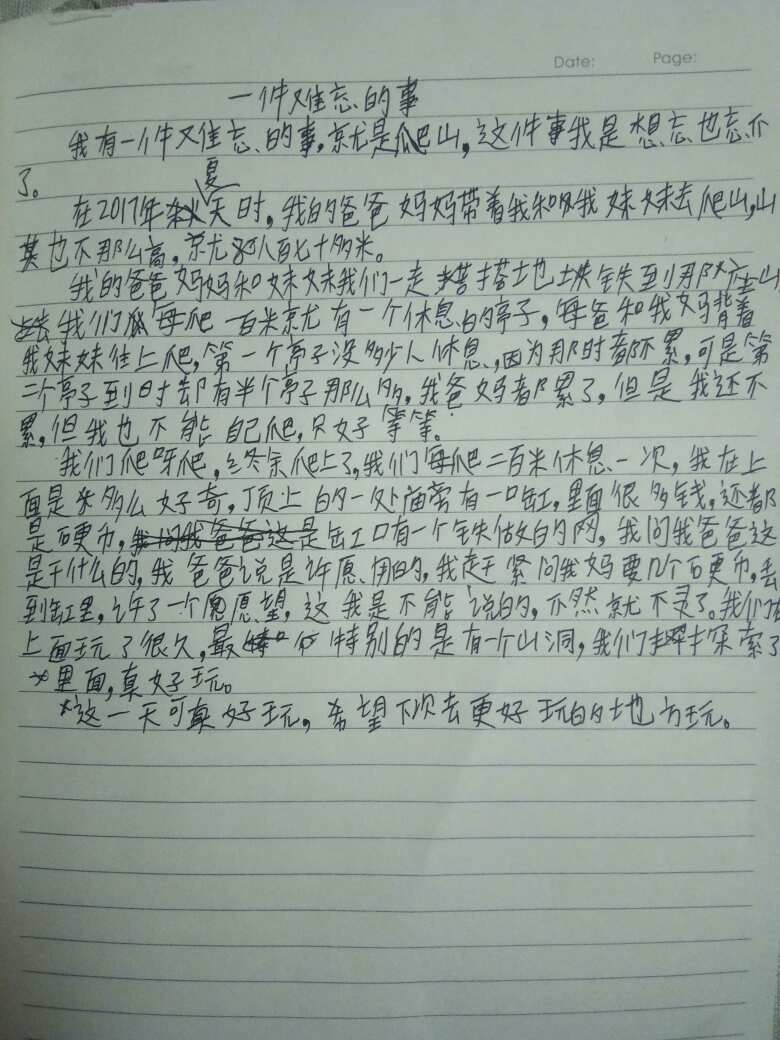 Date: Page:
一件难忘的事
我有一件难忘的事,就是爬山,这件事我是想忘也忘不
了。
在2017年夏天时,我的爸爸妈妈带着我和我妹妹去爬山,山
其也不那么高,就八百七十多米。
我的爸爸妈妈和妹妹我们一走搭地铁到那座山
我们每爬一百米就有一个休息的亭子,爸和我妈背着
我妹妹往上爬,第一个亭子没多少人休息,因为那时都不累,可是第
二个亭子到时却有半个亭子那么多,我爸妈都累了,但是我还不
累,但我也不能自己爬,只好等等。
我们爬呀爬,终余爬上了,我们每爬二百米休息一次,我在上
面是多么好奇,顶上的一处庙旁有一口缸,里面很多钱,还都
是硬币,这是缸口有一个铁做的网,我问我爸爸这
是干什么的,我爸爸说是许愿用的,我赶紧问我妈要几个硬币,丢
到缸里,许了一个愿望,这我是不能说的,不然就不灵了。我们在
上面玩了很久,最特别的是有一个山洞,我们探索了
里面,真好玩。
这一天可真好玩,希望下次去更好玩的地方玩。